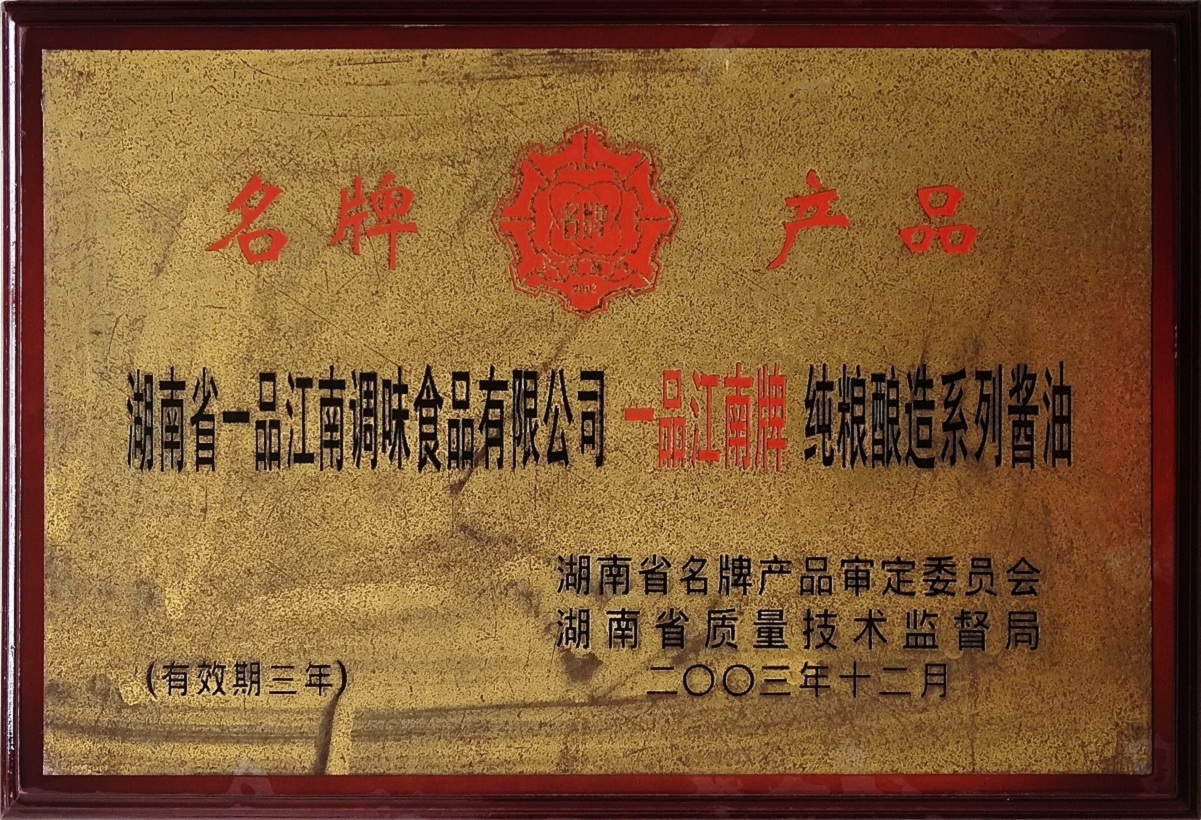 名牌 产品
名牌
2002
湖南省一品江南调味食品有限公司 一品江南牌 纯粮酿造系列酱油
湖南省名牌产品审定委员会
湖南省质量技术监督局
(有效期三年) 二〇〇三年十二月